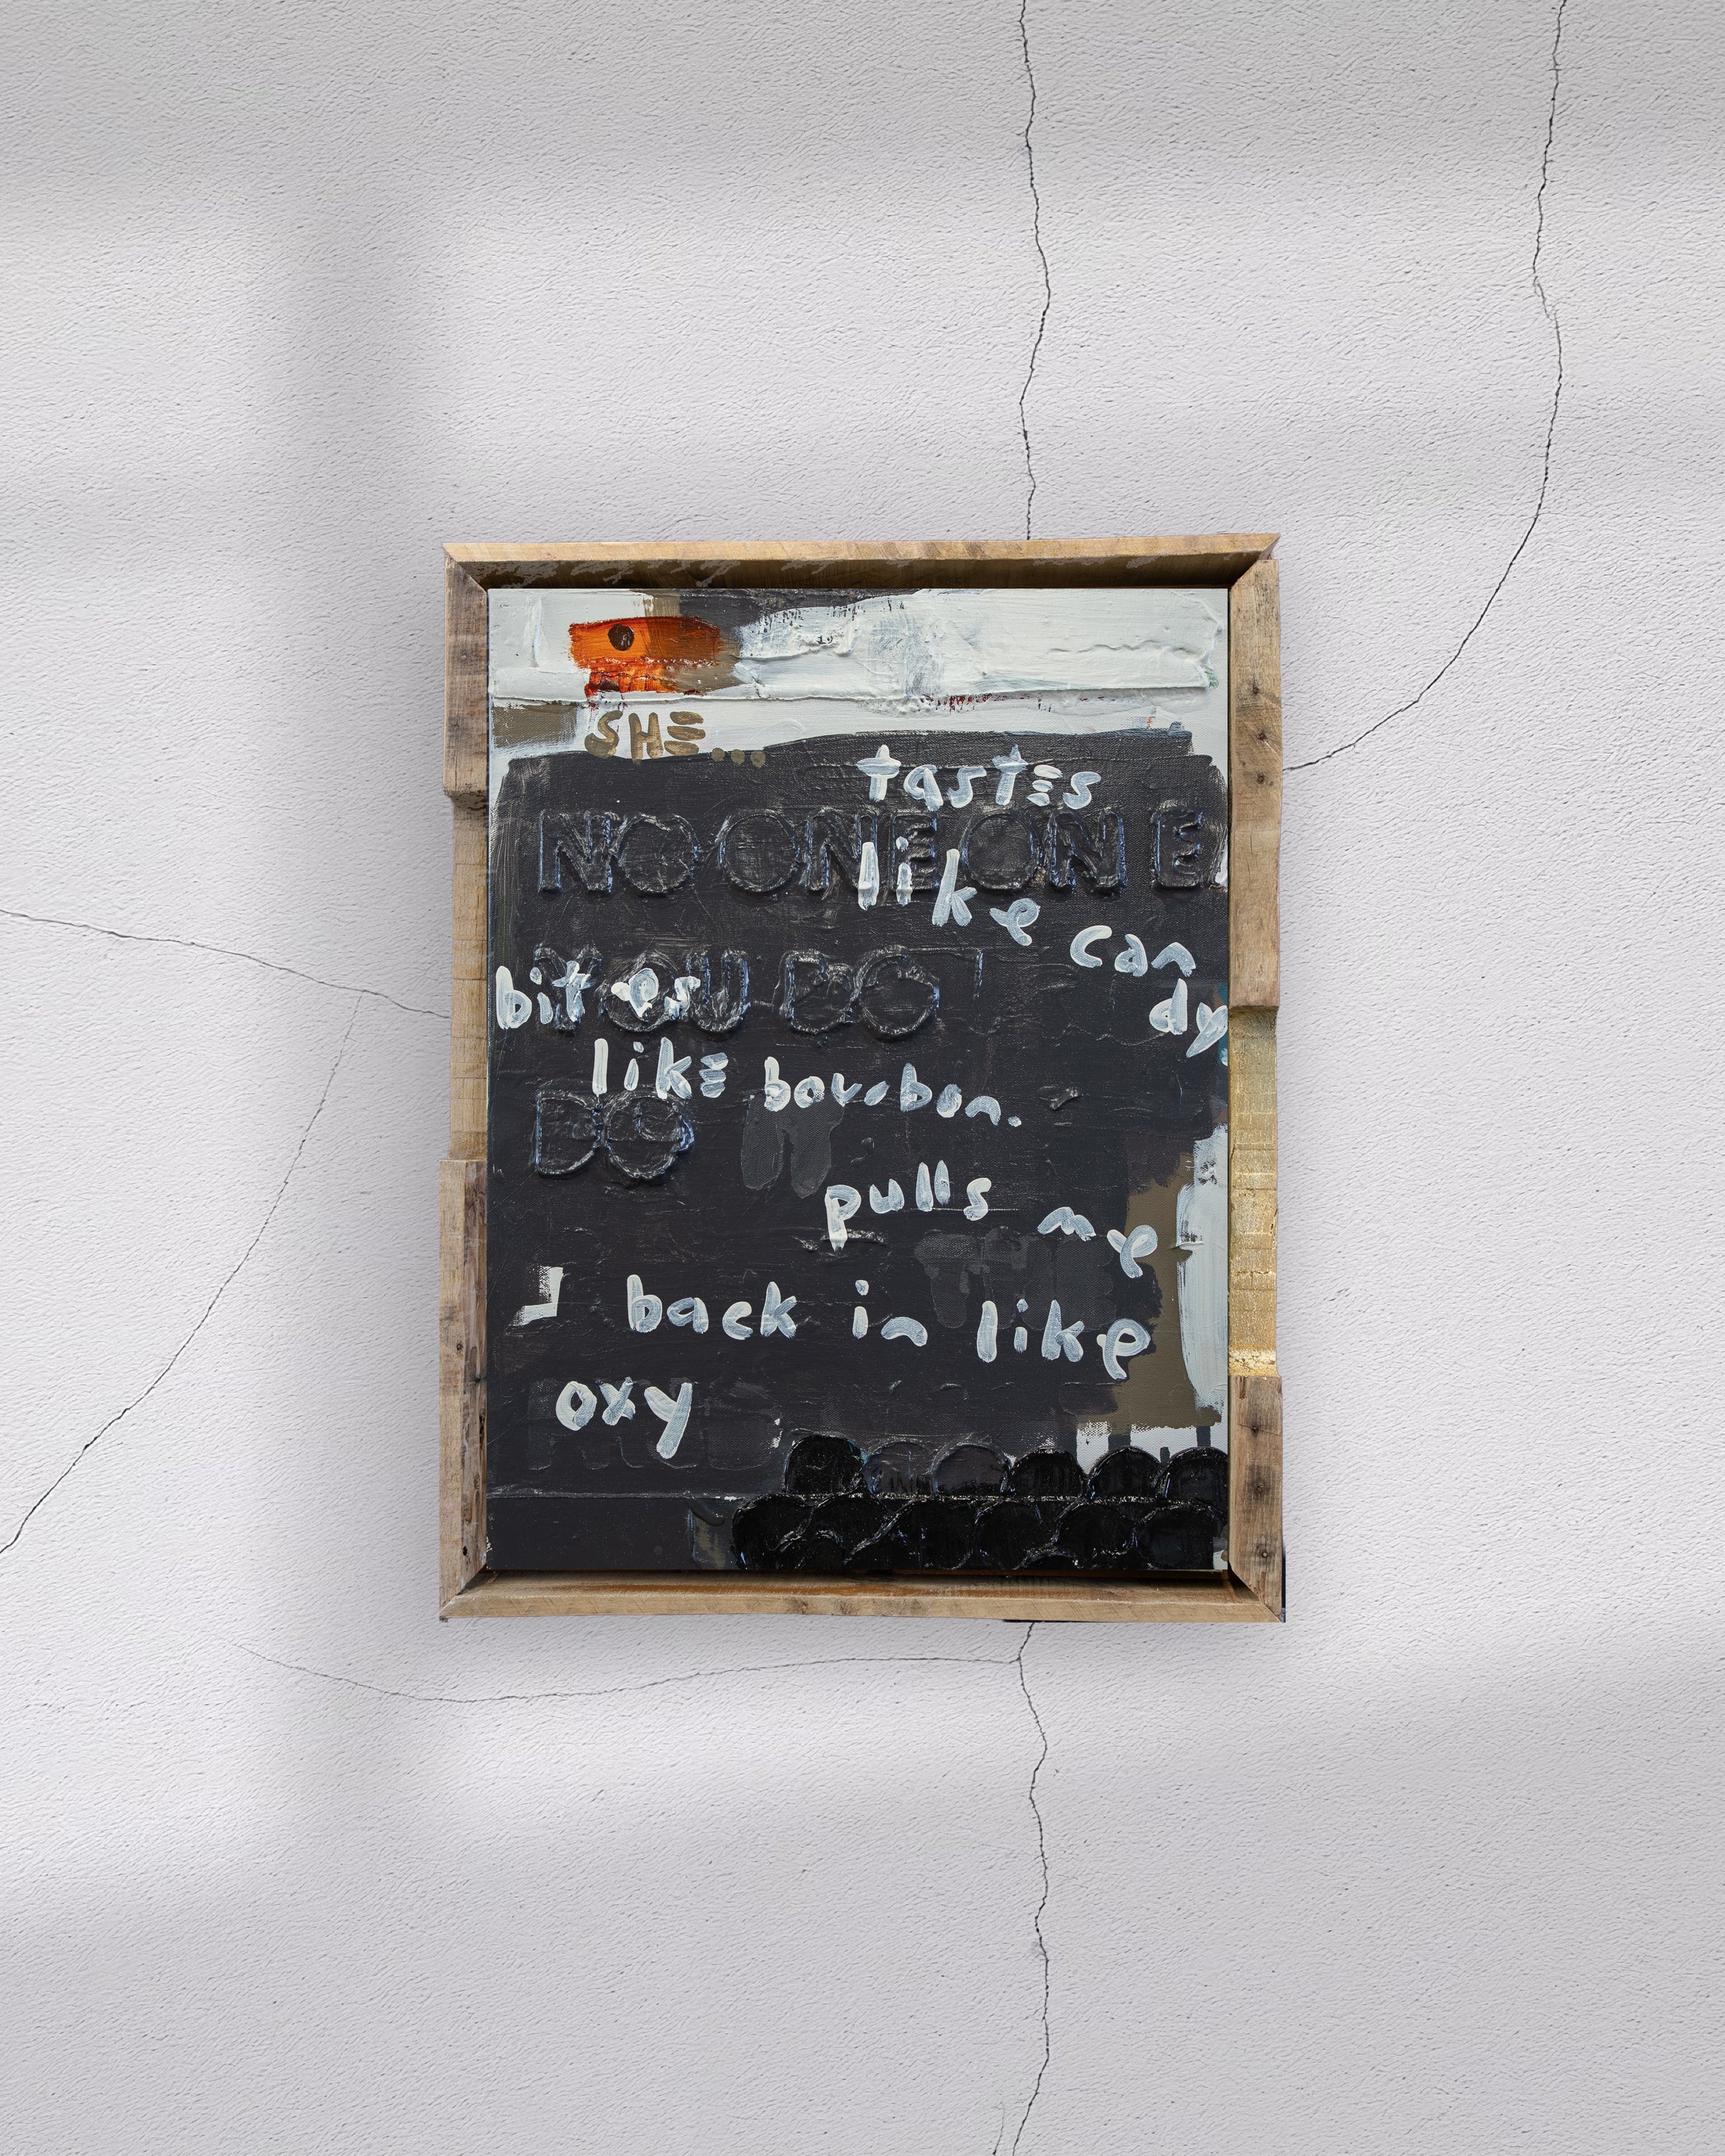 SHE...
tastes
NO ONE ON E
like
can
dy
bites
YOU DO
like bourbon.
DO
pulls me
back in like
oxy